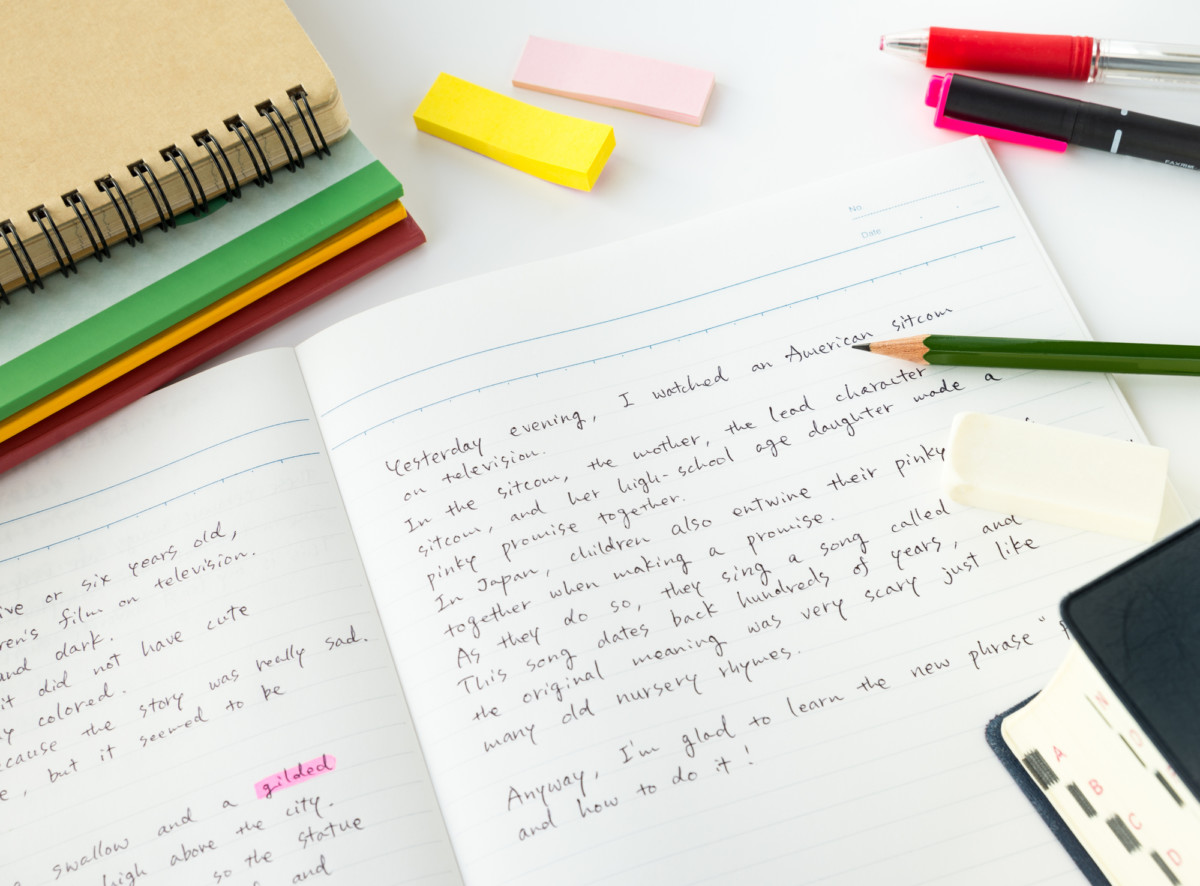 ive or six years old,
ren's film on television.
and dark.
it did not have cute
colored.
ecause the story was really sad.
, but it seemed to be
swallow and a gilded
high above the city.
so the statue
and
No.
Date
Yesterday evening, I watched an American sitcom
on television.
In the sitcom, the mother, the lead character
sitcom, and her high-school age daughter made a
pinky promise together.
In Japan, children also entwine their pinky
together when making a promise.
As they do so, they sing a song called
This song dates back hundreds of years, and
the original meaning was very scary just like
many old nursery rhymes.
Anyway, I'm glad to learn the new phrase "
and how to do it!
A
B
C
D